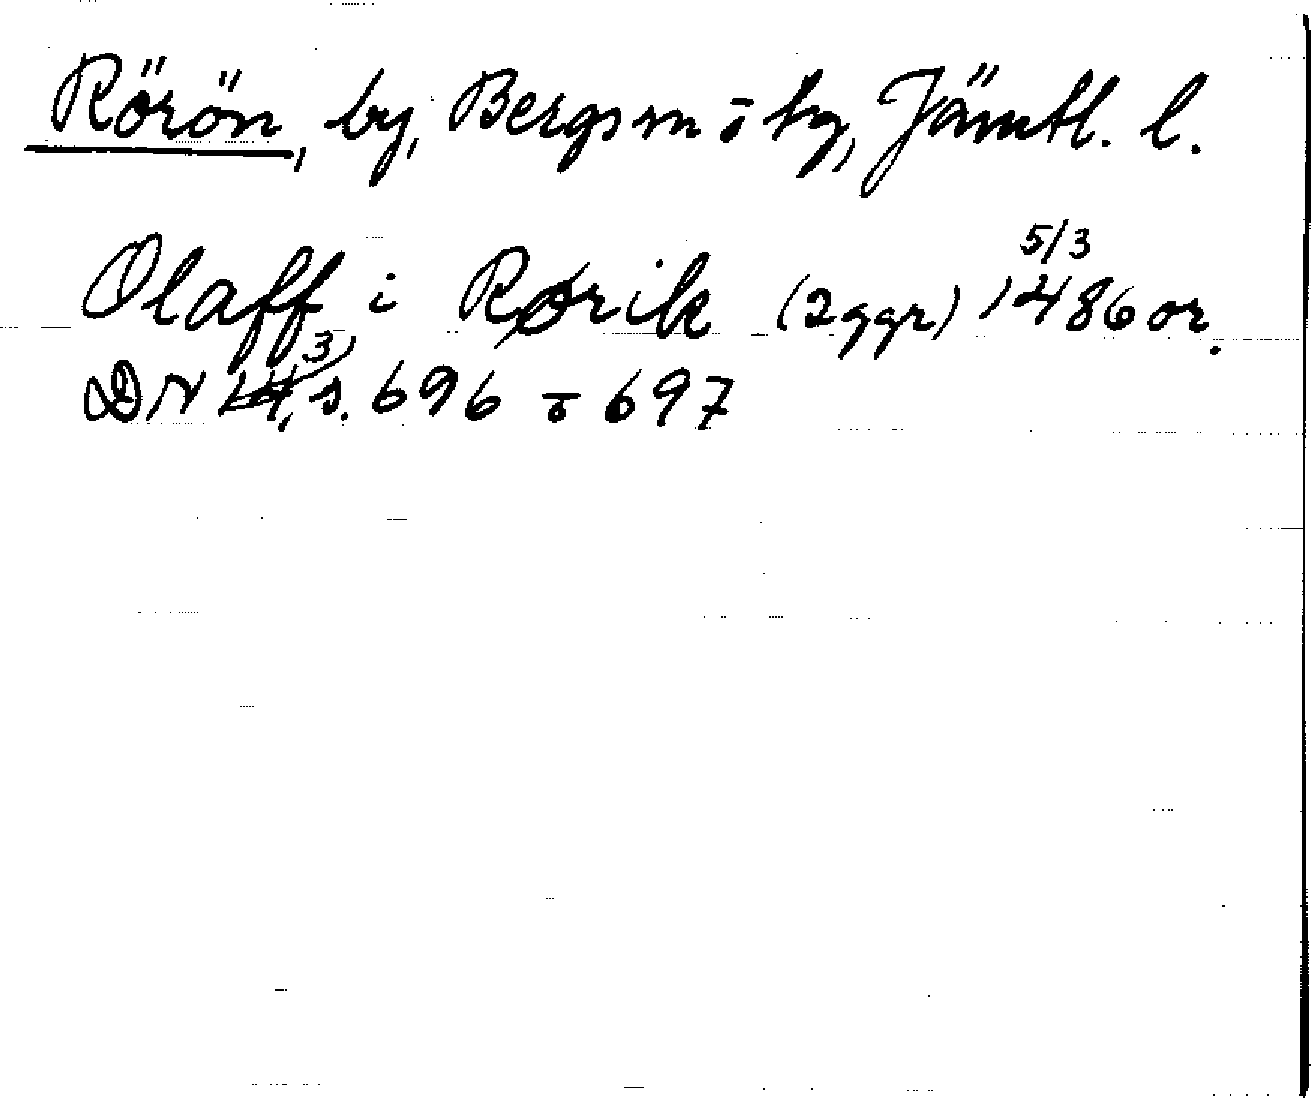 Rörön, by, Bergs sn o hg, Jämtl. l.
Olaff i Rørik (2 ggr) 5/3 1486 or.
DN 3, s. 696 o 697